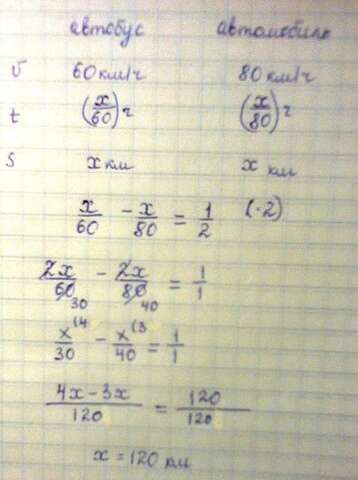 автобус автомобиль
v 60 км/ч 80 км/ч
t (x/60) ч (x/80) ч
S x км x км
x/60 - x/80 = 1/2 (·2)
2x/60 30 - 2x/80 40 = 1/1
x(4/30 - x(3/40 = 1/1
4x-3x/120 = 120/120
x = 120 км